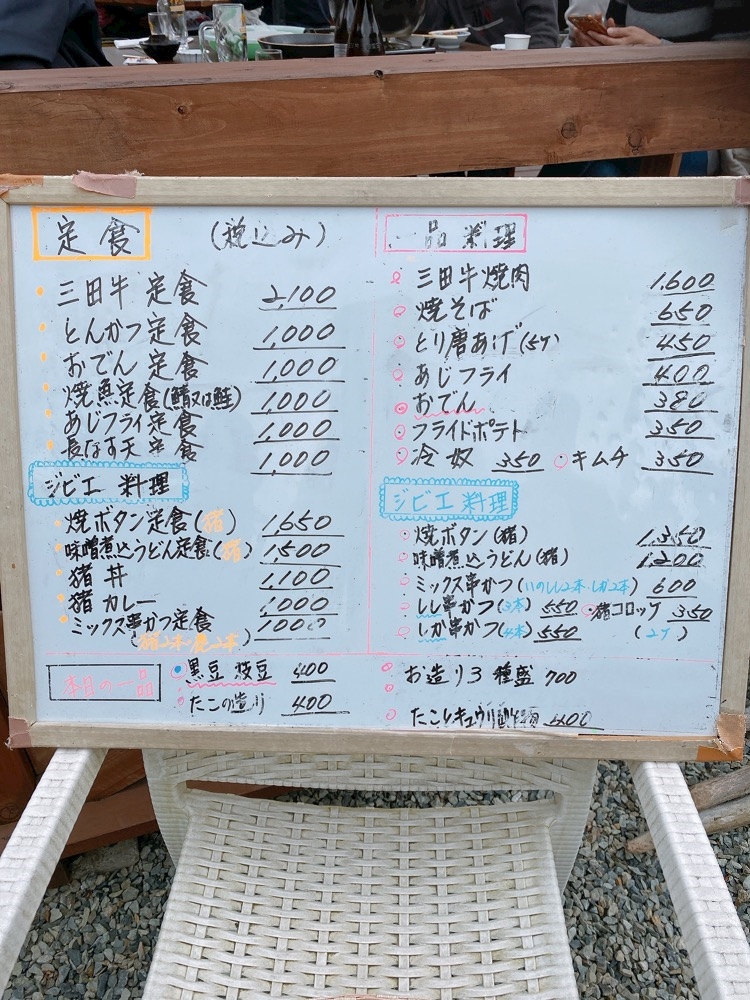 定食 (税込み)
三田牛 定食 2,100
とんかつ定食 1,000
おでん 定食 1,000
焼魚定食(鯖又は鮭) 1,000
あじフライ定食 1,000
長なす天定食 1,000
ジビエ 料理
焼ボタン定食(猪) 1,650
味噌煮込うどん定食(猪) 1,500
猪 丼 1,100
猪 カレー 1,000
ミックス串かつ定食 1,000
(猪2本・鹿2本)
一品 料理
三田牛焼肉 1,600
焼そば 650
とり唐あげ(5ケ) 450
あじフライ 400
おでん 380
フライドポテト 350
冷奴 350 キムチ 350
ジビエ料理
焼ボタン(猪) 1,350
味噌煮込うどん(猪) 1,200
ミックス串かつ(いのしし2本・しか2本) 600
しし串かつ(3本) 550 猪コロッケ 350
しか串かつ(4本) 550 (2ケ)
本日の一品
黒豆 枝豆 400
たこの造り 400
お造り3種盛 700
たことキュウリ 400